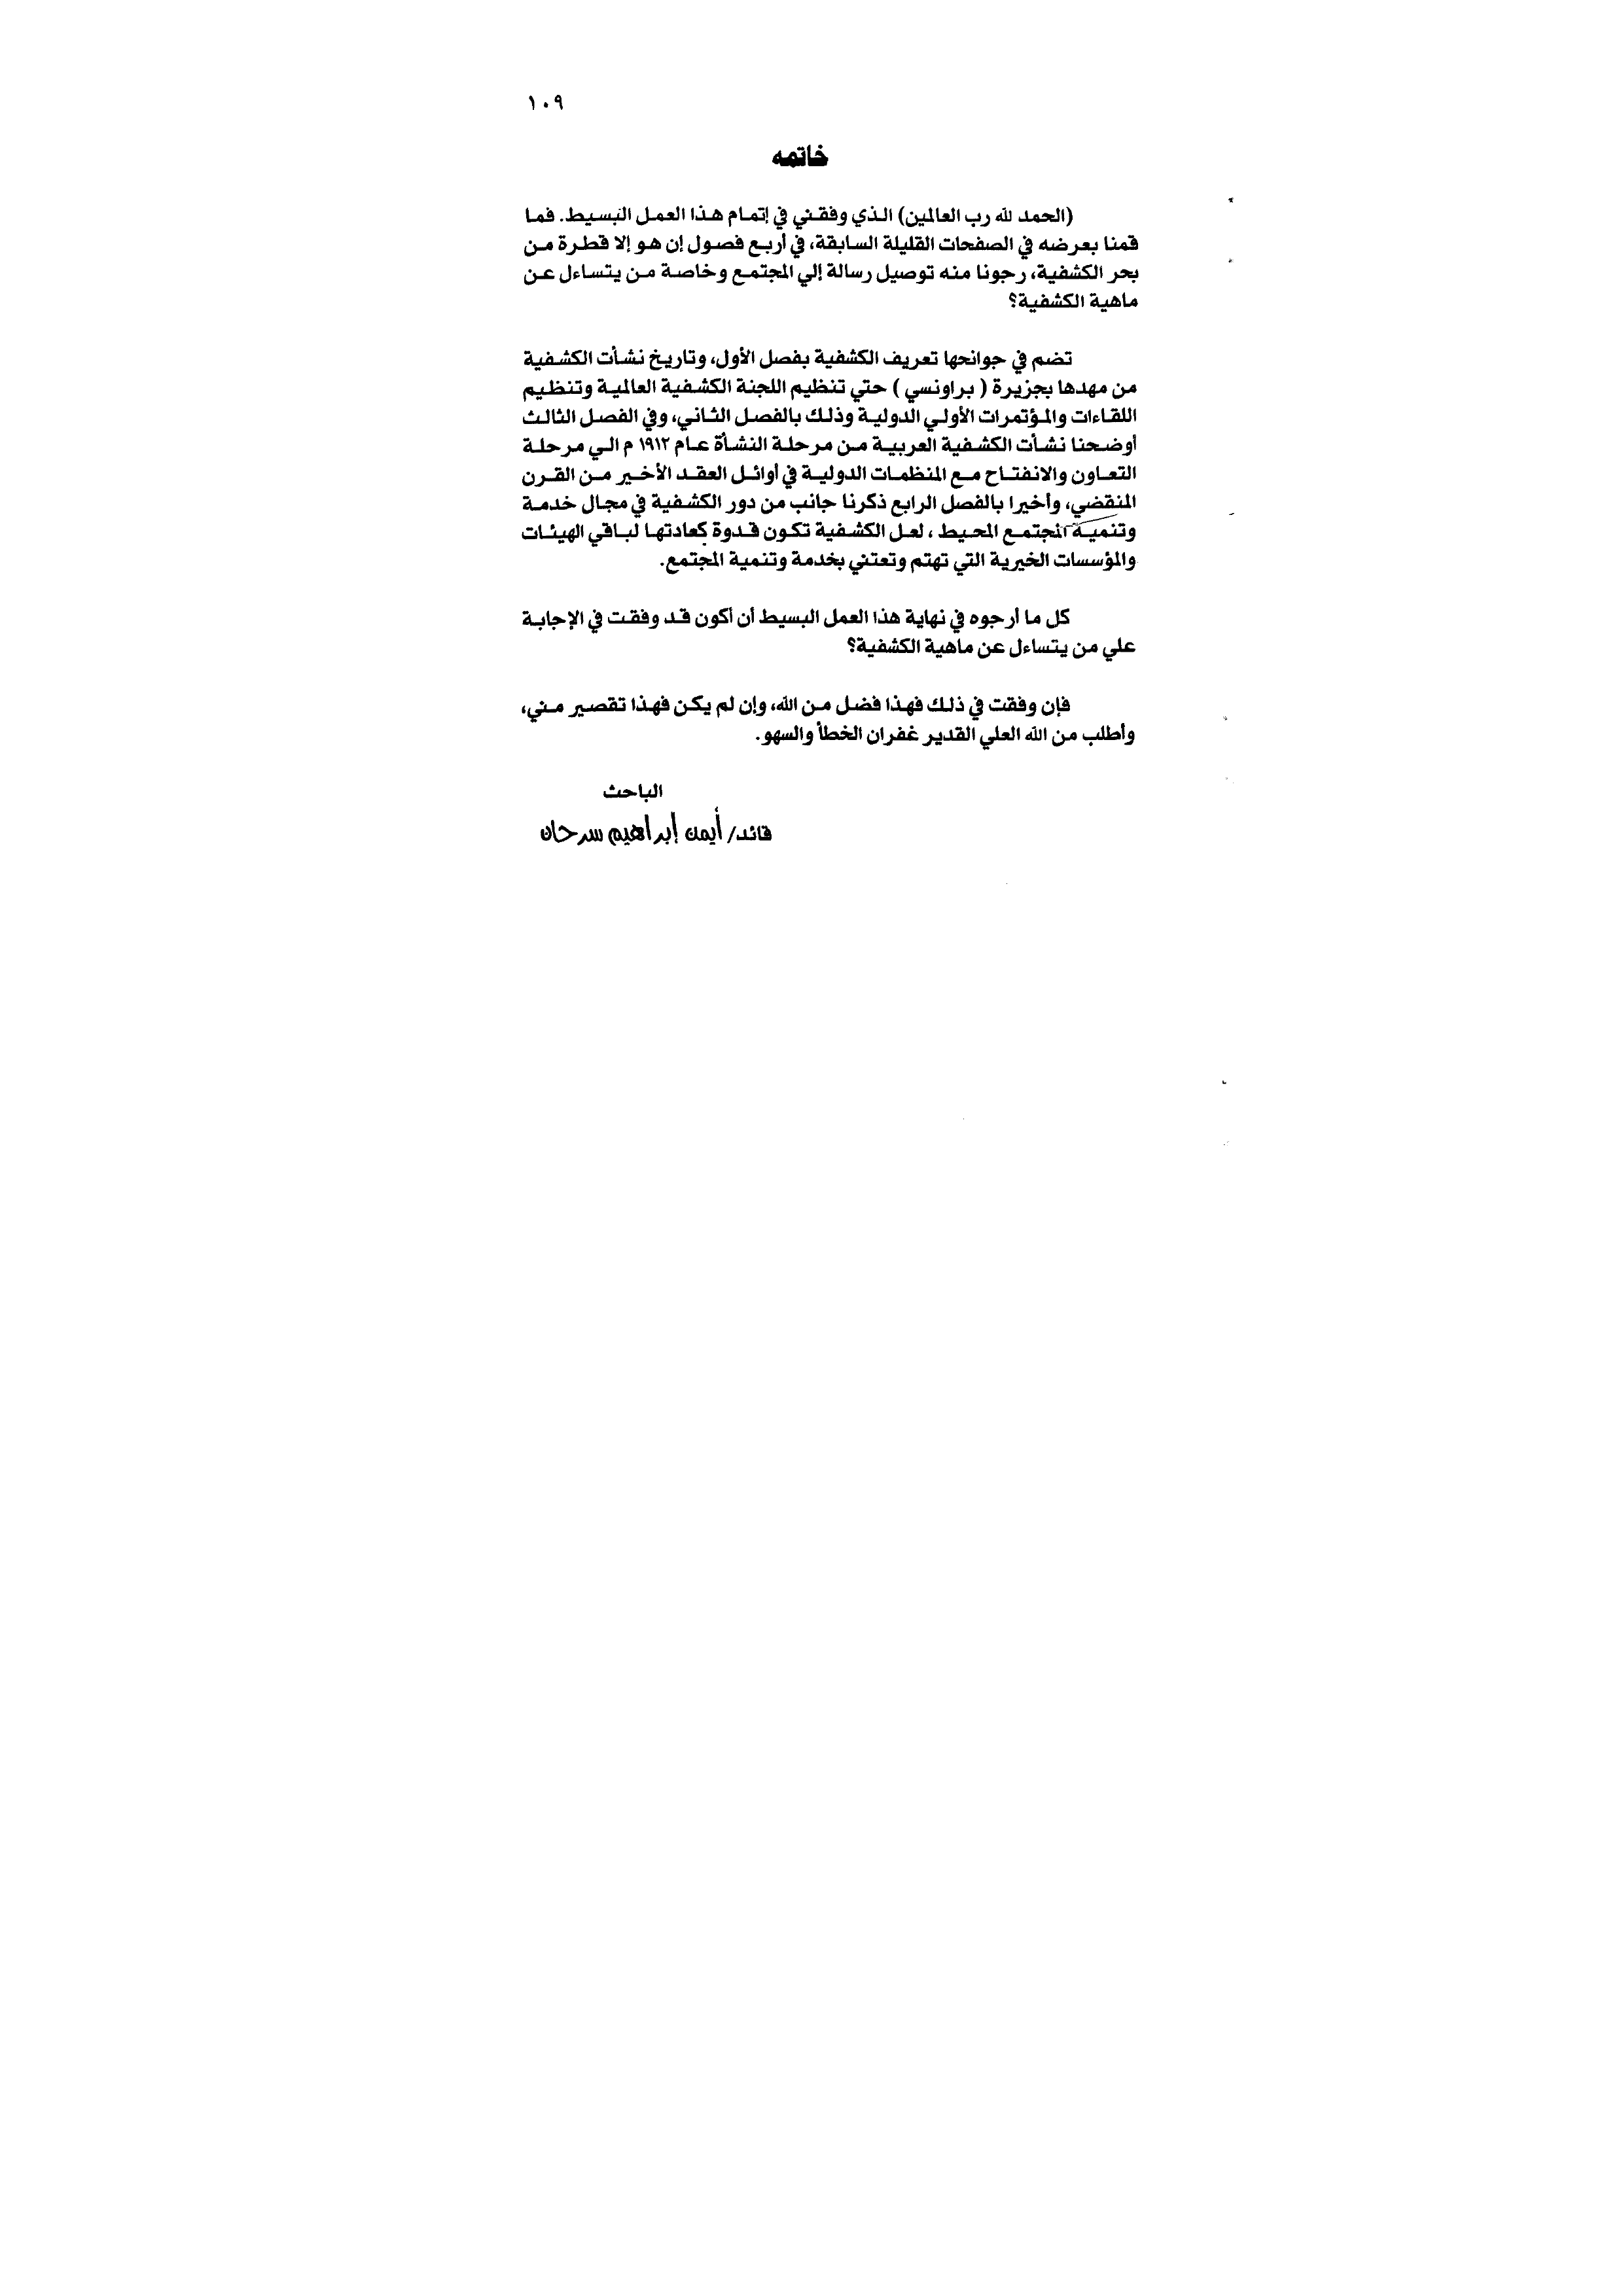 ١٠٩
خاتمه
(الحمد لله رب العالمين) الذي وفقني في إتمام هذا العمل البسيط. فما
قمنا بعرضه في الصفحات القليلة السابقة، في أربع فصول إن هو إلا قطرة من
بحر الكشفية، رجونا منه توصيل رسالة إلي المجتمع وخاصة من يتساءل عن
ماهية الكشفية؟
تضم في جوانحها تعريف الكشفية بفصل الأول، وتاريخ نشأت الكشفية
من مهدها بجزيرة ( براونسي ) حتي تنظيم اللجنة الكشفية العالمية وتنظيم
اللقاءات والمؤتمرات الأولي الدولية وذلك بالفصل الثاني، وفي الفصل الثالث
أوضحنا نشأت الكشفية العربية من مرحلة النشأة عام ١٩١٢ م الي مرحلة
التعاون والانفتاح مع المنظمات الدولية في أوائل العقد الأخير من القرن
المنقضي، وأخيرا بالفصل الرابع ذكرنا جانب من دور الكشفية في مجال خدمة
وتنمية المجتمع المحيط ، لعل الكشفية تكون قدوة كعادتها لباقي الهيئات
والمؤسسات الخيرية التي تهتم وتعتني بخدمة وتنمية المجتمع.
كل ما أرجوه في نهاية هذا العمل البسيط أن أكون قد وفقت في الإجابة
علي من يتساءل عن ماهية الكشفية؟
فإن وفقت في ذلك فهذا فضل من الله، وإن لم يكن فهذا تقصير مني،
وأطلب من الله العلي القدير غفران الخطأ والسهو.
الباحث
قائد/ أيمن إبراهيم سرحان